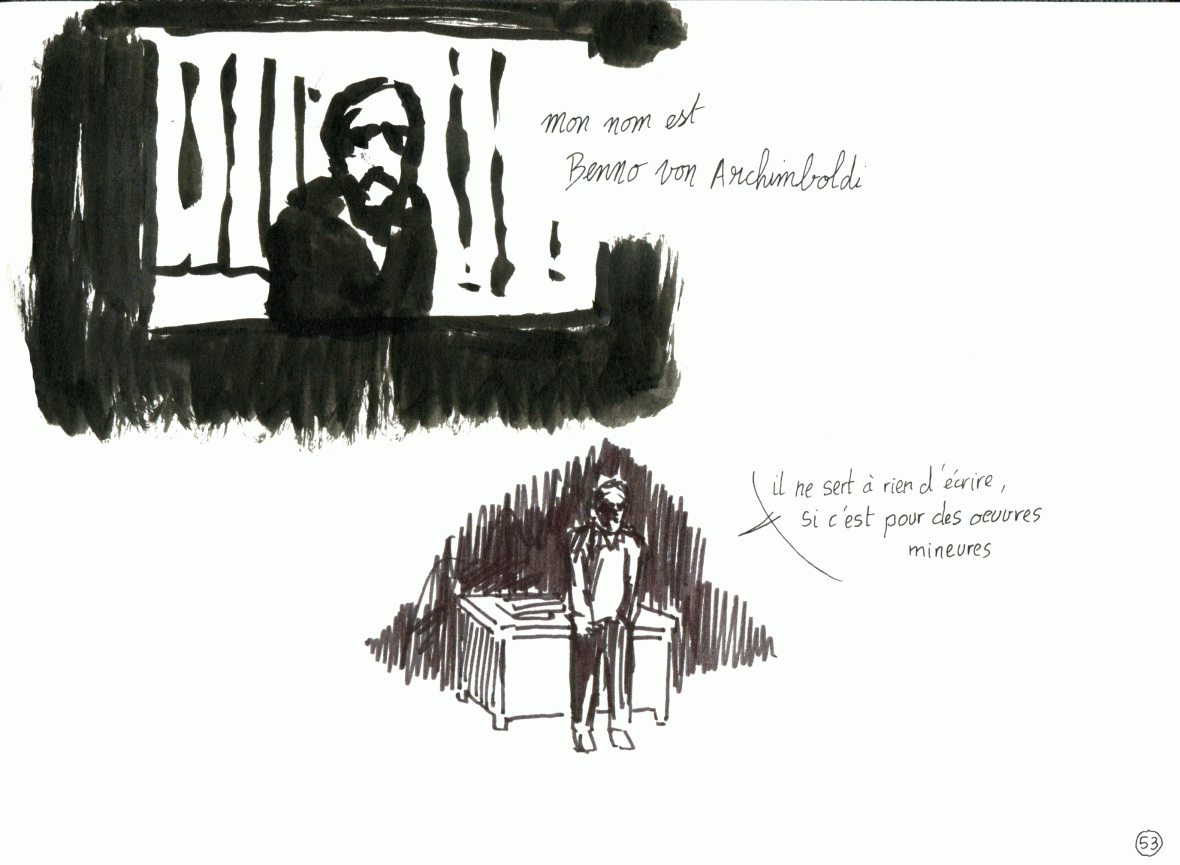 mon nom est
Benno von Archimboldi
il ne sert à rien d'écrire,
si c'est pour des oeuvres
mineures
53